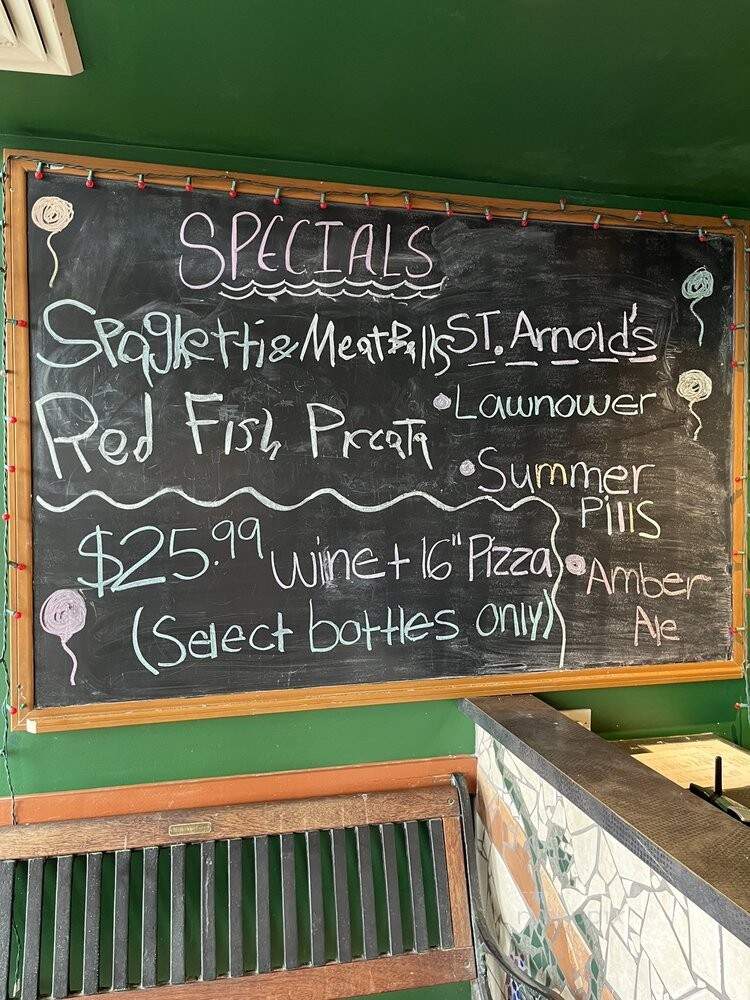 SPECIALS
Spaghetti & MeatBalls
Red Fish Piccata
$25.99 wine + 16" Pizza
(Select bottles only)
ST. Arnold's
Lawnower
Summer
Pills
Amber
Ale